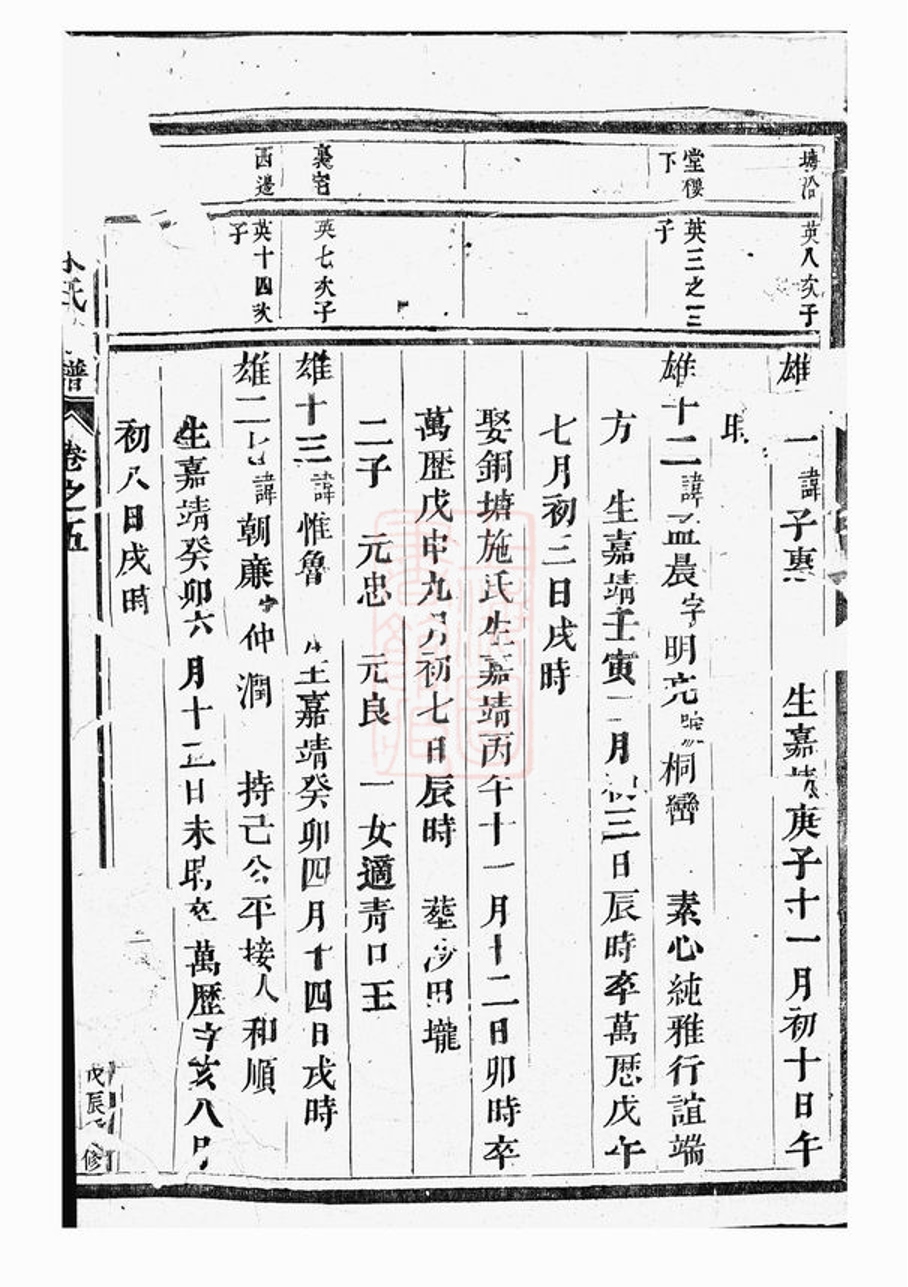 塘沿
英八次子
雄一諱子惠 生嘉靖庚子十一月初十日午
堂樓下
英三之三子
雄十二諱孟晨字明亮號桐巒 素心純雅行誼端
方 生嘉靖壬寅二月初三日辰時卒萬歷戊午
七月初三日戌時
娶銅塘施氏生嘉靖丙午十一月十二日卯時卒
萬歷戊申九月初七日辰時 葬沙田壠
二子 元忠 元良 一女適青口王
裏宅
英七次子
雄十三諱惟魯 生嘉靖癸卯四月十四日戌時
西邊
英十四次子
雄二七諱朝廉字仲潤 持己公平接人和順
生嘉靖癸卯六月十二日未時卒萬歷辛亥八月
初八日戌時
氏 譜 卷之五
戊辰 修